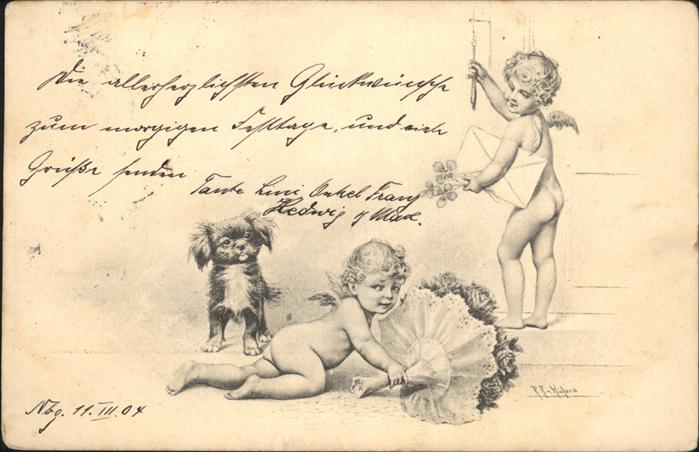 Die allerherzlichsten Glückwünsche
zum morgigen Festtage, und viele
Grüße senden
Tante Lini, Onkel Franz
Hedwig & Max.
Nbg. 11. III. 04